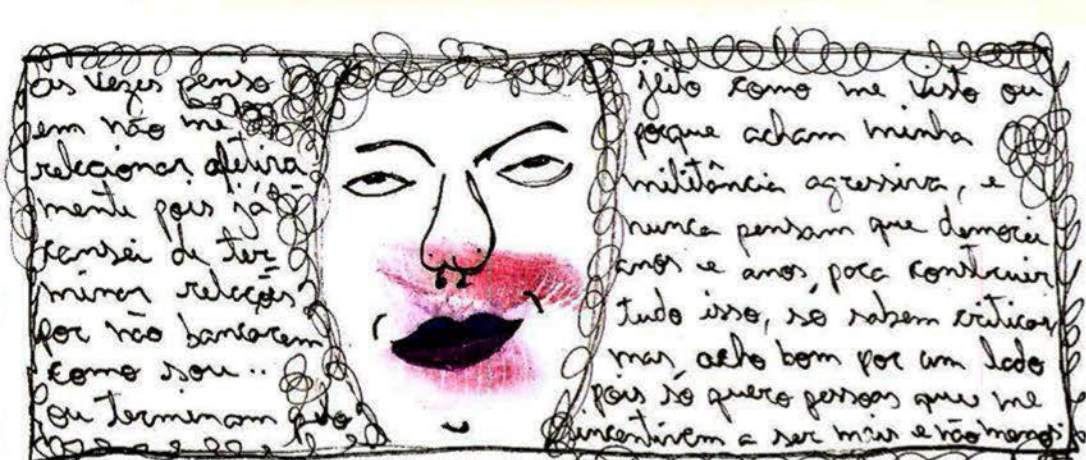 às vezes penso
em não me
relacionar afetiva
mente pois já
cansei de ter
minar relações
por não bancarem
como sou..
ou terminam pelo
jeito como me visto ou
porque acham minha
militância agressiva, e
nunca pensam que demorei
anos e anos para construir
tudo isso, só sabem criticar
mas acho bom por um lado
pois só quero pessoas que me
incentivem a ser mais e não menos